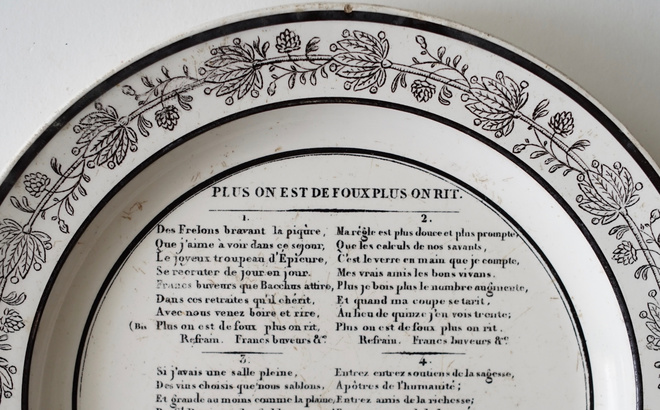 PLUS ON EST DE FOUX PLUS ON RIT.
1.
Des Frelons bravant la piqûre,
Que j'aime à voir dans ce séjour,
Le joyeux troupeau d'Épicure,
Se recruter de jour en jour.
Francs buveurs que Bacchus attire,
Dans ces retraites qu'il chérit,
Avec nous venez boire et rire,
(Bis Plus on est de foux plus on rit,
Refrain. Francs buveurs &c
2.
Ma règle est plus douce et plus prompte,
Que les calculs de nos savants,
C'est le verre en main que je compte,
Mes vrais amis les bons vivans.
Plus je bois plus le nombre augmente,
Et quand ma coupe se tarit,
Au lieu de quinze j'en vois trente;
Plus on est de foux plus on rit.
Refrain. Francs buveurs &c
3.
Si j'avais une salle pleine,
Des vins choisis que nous sablons,
Et grande au moins comme la plaine,
4.
Entrez entrez soutiens de la sagesse,
Apôtres de l'humanité;
Entrez amis de la richesse;